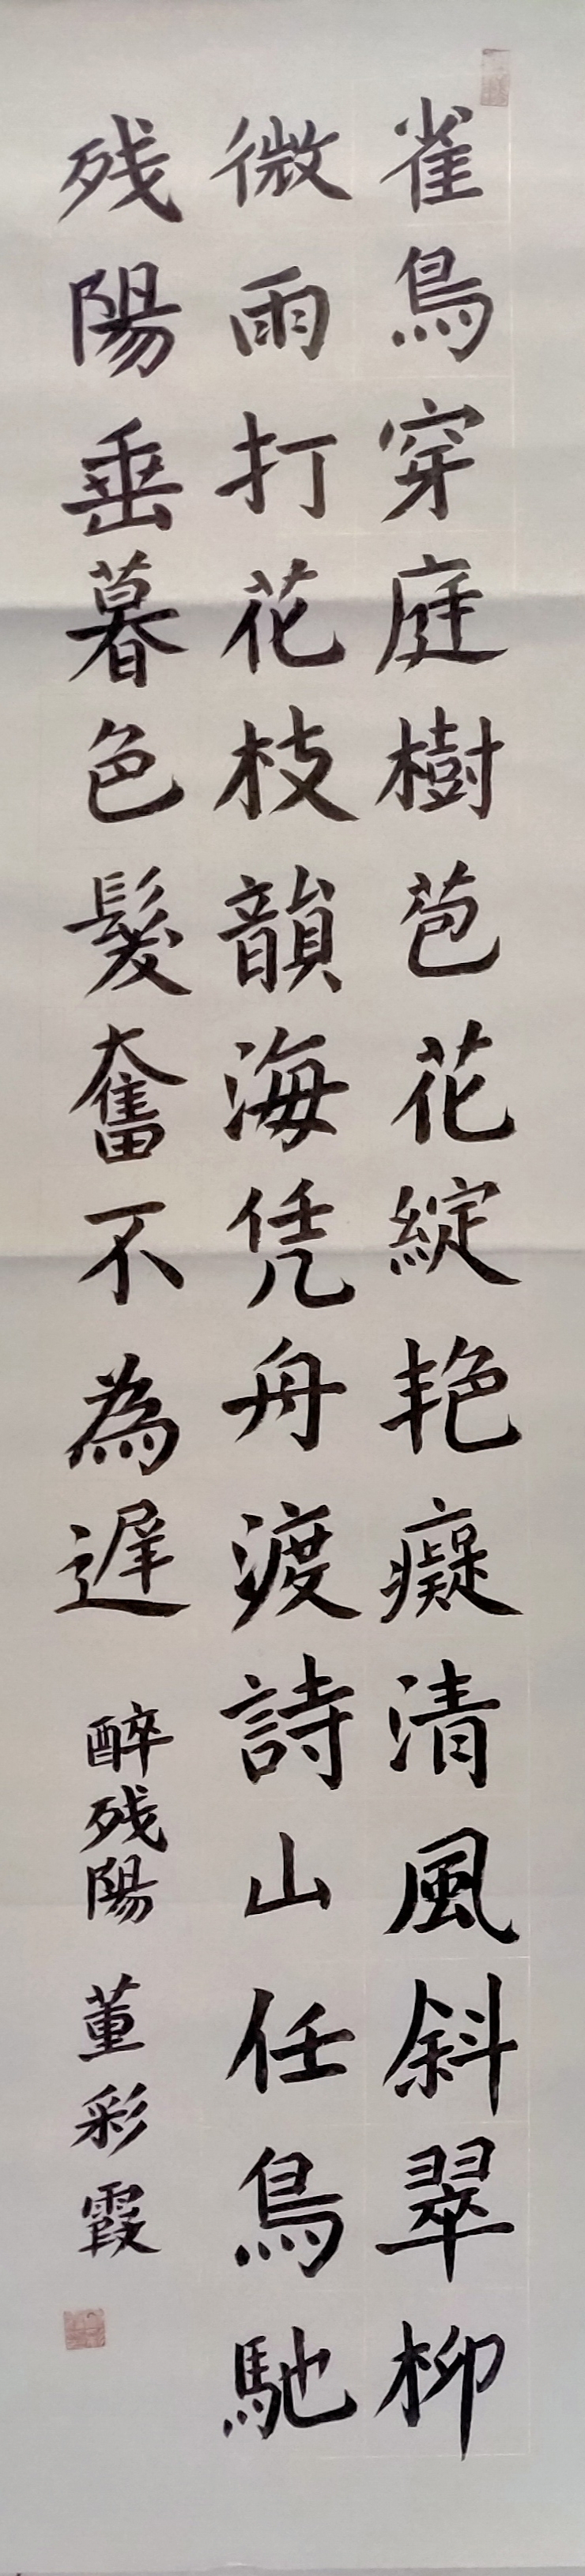 雀鳥穿庭樹苞花綻艳癡清風斜翠柳
微雨打花枝韻海凭舟渡詩山任鳥馳
残陽垂暮色髮奮不為遲 醉残陽 董彩霞